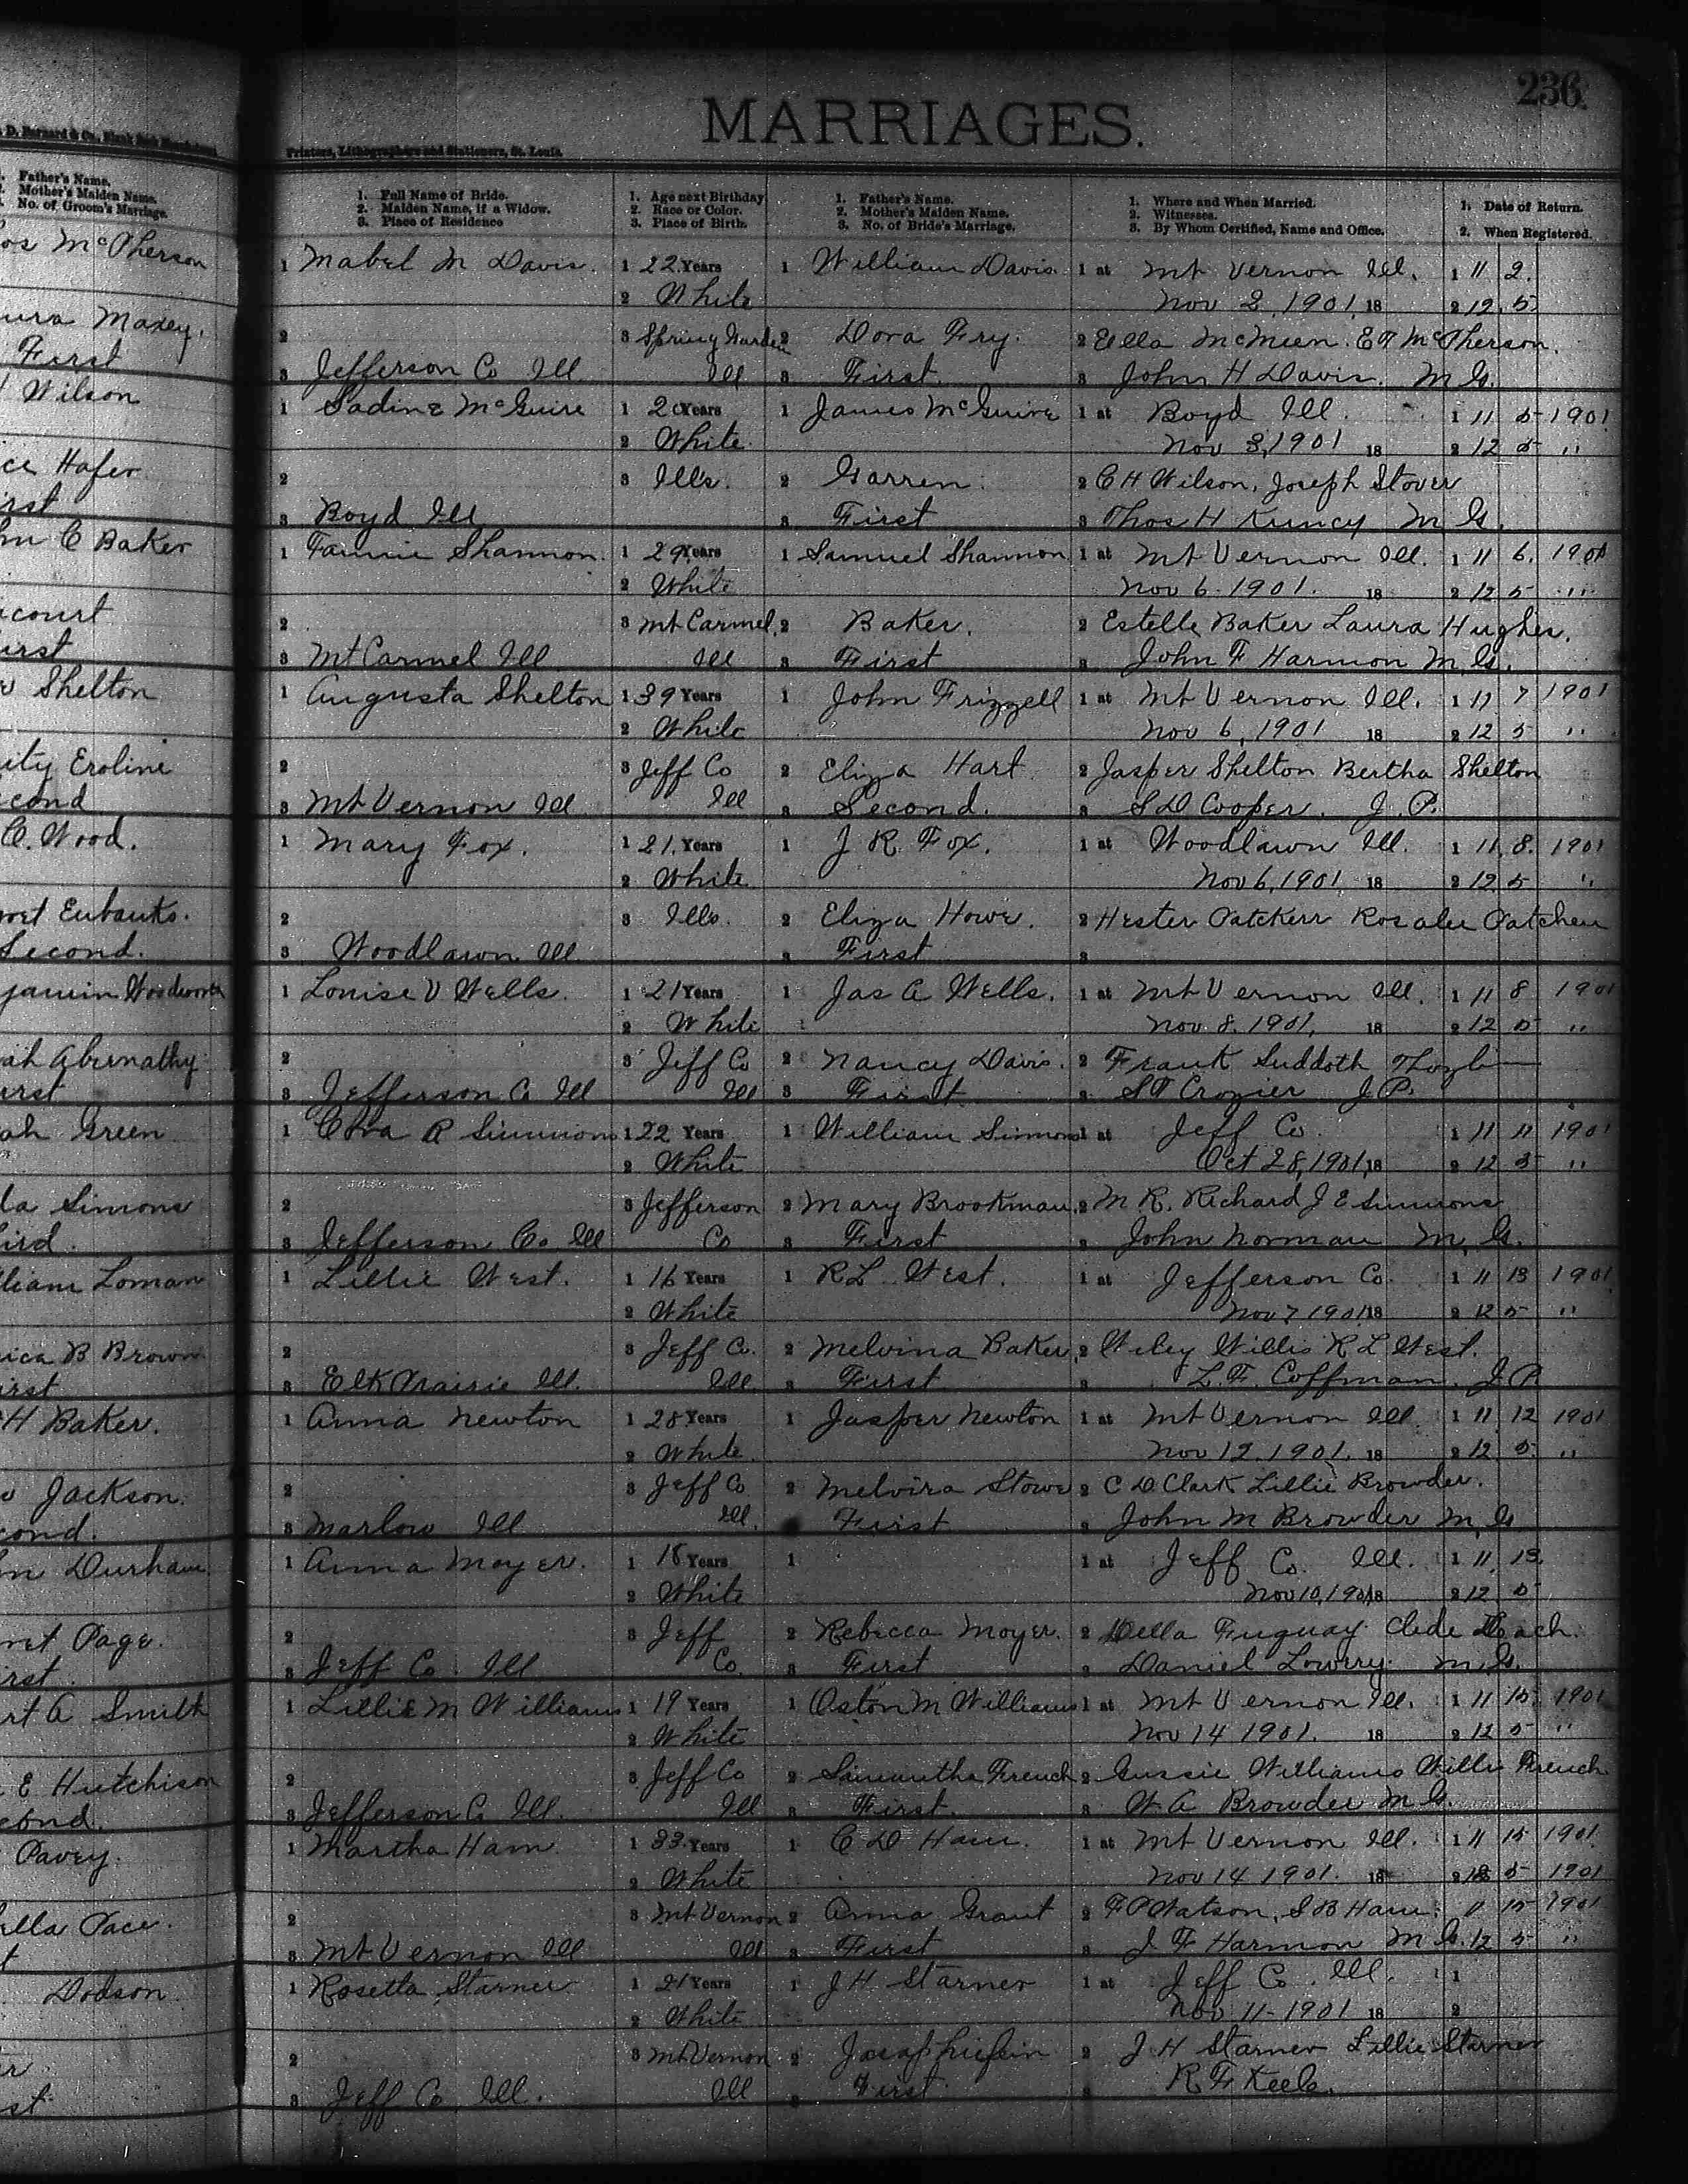 236.
MARRIAGES.
Printers, Lithographers and Stationers, St. Louis.
Father's Name.
Mother's Maiden Name.
No. of Groom's Marriage.
1. Full Name of Bride.
2. Maiden Name, if a Widow.
3. Place of Residence
1. Age next Birthday
2. Race or Color.
3. Place of Birth.
1. Father's Name.
2. Mother's Maiden Name.
3. No. of Bride's Marriage.
1. Where and When Married.
2. Witnesses.
3. By Whom Certified, Name and Office.
1. Date of Return.
2. When Registered.
os McPherson 1 Mabel M Davis. 1 22 Years 1 William Davis. 1 at Mt Vernon Ill. 1 11 2.
2 White Nov 2, 1901, 18 2 12 5
ura Maxey. 2 3 Spring Garden 2 Dora Fry. 2 Ella McMeen. E T McPherson.
First 3 Jefferson Co Ill. Ill 3 First. 3 John H Davis. M G.
Wilson 1 Sadine McGuire 1 20 Years 1 James McGuire 1 at Boyd Ill. 1 11 5 1901
2 White Nov 3, 1901 18 2 12 5 "
ce Hafer 2 3 Ills. 2 Garren. 2 C H Wilson, Joseph Stover
rst 3 Boyd Ill 3 First 3 Thos H Kuncy M G.
hn C Baker 1 Fannie Shannon. 1 29 Years 1 Samuel Shannon 1 at Mt Vernon Ill. 1 11 6. 1901
2 White Nov 6 1901. 18 2 12 5 "
court 2 3 Mt Carmel, 2 Baker. 2 Estelle Baker Laura Hughes.
irst 3 Mt Carmel Ill Ill 3 First 3 John F Harmon M G.
Shelton 1 Augusta Shelton 1 39 Years 1 John Frizzell 1 at Mt Vernon Ill. 1 11 7 1901
2 White Nov 6, 1901 18 2 12 5 "
ity Eroline 2 3 Jeff Co 2 Eliza Hart 2 Jasper Shelton Bertha Shelton
cond 3 Mt Vernon Ill Ill 3 Second. 3 S D Cooper. J. P.
C. Wood. 1 Mary Fox. 1 21. Years 1 J R Fox. 1 at Woodlawn Ill. 1 11 8. 1901
2 White Nov 6, 1901 18 2 12 5 "
ret Eubanks. 2 3 Ills. 2 Eliza Howe. 2 Hester Rosalee Patchen
Second. 3 Woodlawn Ill. 3 First 3
jamin Woodworth 1 Louise V Wells. 1 21 Years 1 Jas A Wells. 1 at Mt Vernon Ill. 1 11 8 1901
2 White Nov. 8. 1901, 18 2 12 5 "
ah Abernathy 2 3 Jeff Co 2 Nancy Davis. 2 Frank Suddoth
irst 3 Jefferson Co Ill Ill 3 First 3 S T Crozier J P.
ah Green 1 Cora R Simmons 1 22 Years 1 William Simmons 1 at Jeff Co. 1 11 11 1901
2 White Oct 28, 1901, 18 2 12 5 "
la Simons 2 3 Jefferson 2 Mary Brookman. 2 M R. Richard J E Simmons
ird. 3 Jefferson Co. Ill Co 3 First 3 John Norman M. G.
lliam Loman 1 Lillie West. 1 16 Years 1 R L West. 1 at Jefferson Co. 1 11 13 1901
2 White Nov 7 1901 18 2 12 5 "
ica B Brown 2 3 Jeff Co. 2 Melvina Baker. 2 Wiley Willis R L West.
irst 3 Elk Prairie Ill. Ill 3 First 3 L. F. Coffman. J. P
H Baker. 1 Anna Newton 1 28 Years 1 Jasper Newton 1 at Mt Vernon Ill 1 11 12 1901
2 White Nov 12. 1901. 18 2 12 5. "
Jackson. 2 3 Jeff Co 2 Melvira Stowe 2 C D Clark Lillie Browder.
cond. 3 Marlow Ill Ill. First 3 John M Browder M, G
n Durham 1 Anna Moyer. 1 18 Years 1 1 at Jeff Co. Ill. 1 11 13.
2 White Nov 10, 1901 18 2 12 5
ret Page. 2 3 Jeff 2 Rebecca Moyer. 2 Della Fuquay Clede
irst. 3 Jeff Co. Ill Co. 3 First 3 Daniel Lowry. M. G.
rt A Smith 1 Lillie M Williams 1 19 Years 1 Oston M Williams 1 at Mt Vernon Ill. 1 11 15. 1901
2 White Nov 14 1901. 18 2 12 5 "
E Hutchison 2 3 Jeff Co 2 Samantha French 2 Gussie Williams Willie French
cond. 3 Jefferson Co Ill. Ill 3 First. 3 W A Browder M G.
Pavey. 1 Martha Ham 1 33. Years 1 C D Ham. 1 at Mt Vernon Ill. 1 11 15 1901
2 White Nov 14 1901. 18 2 12 5 1901
ella Pace. 2 3 Mt Vernon 2 Anna Grant 2 F P Watson, S B Ham. 11 15 1901
t 3 Mt Vernon Ill Ill 3 First 3 J F Harmon M G. 12 5 "
Dodson 1 Rosetta Starner 1 21 Years 1 J H Starner 1 at Jeff Co. Ill. 1
2 White Nov 11-1901 18 2
r 2 3 Mt Vernon 2 2 J H Starner Lillie Starner
st 3 Jeff Co. Ill. Ill 3 First 3 R F Keele.